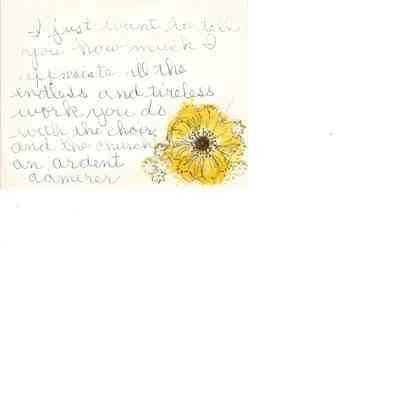 I just want to tell
you how much I
appreciate all the
endless and tireless
work you do
with the choir,
and the church
an ardent
admirer